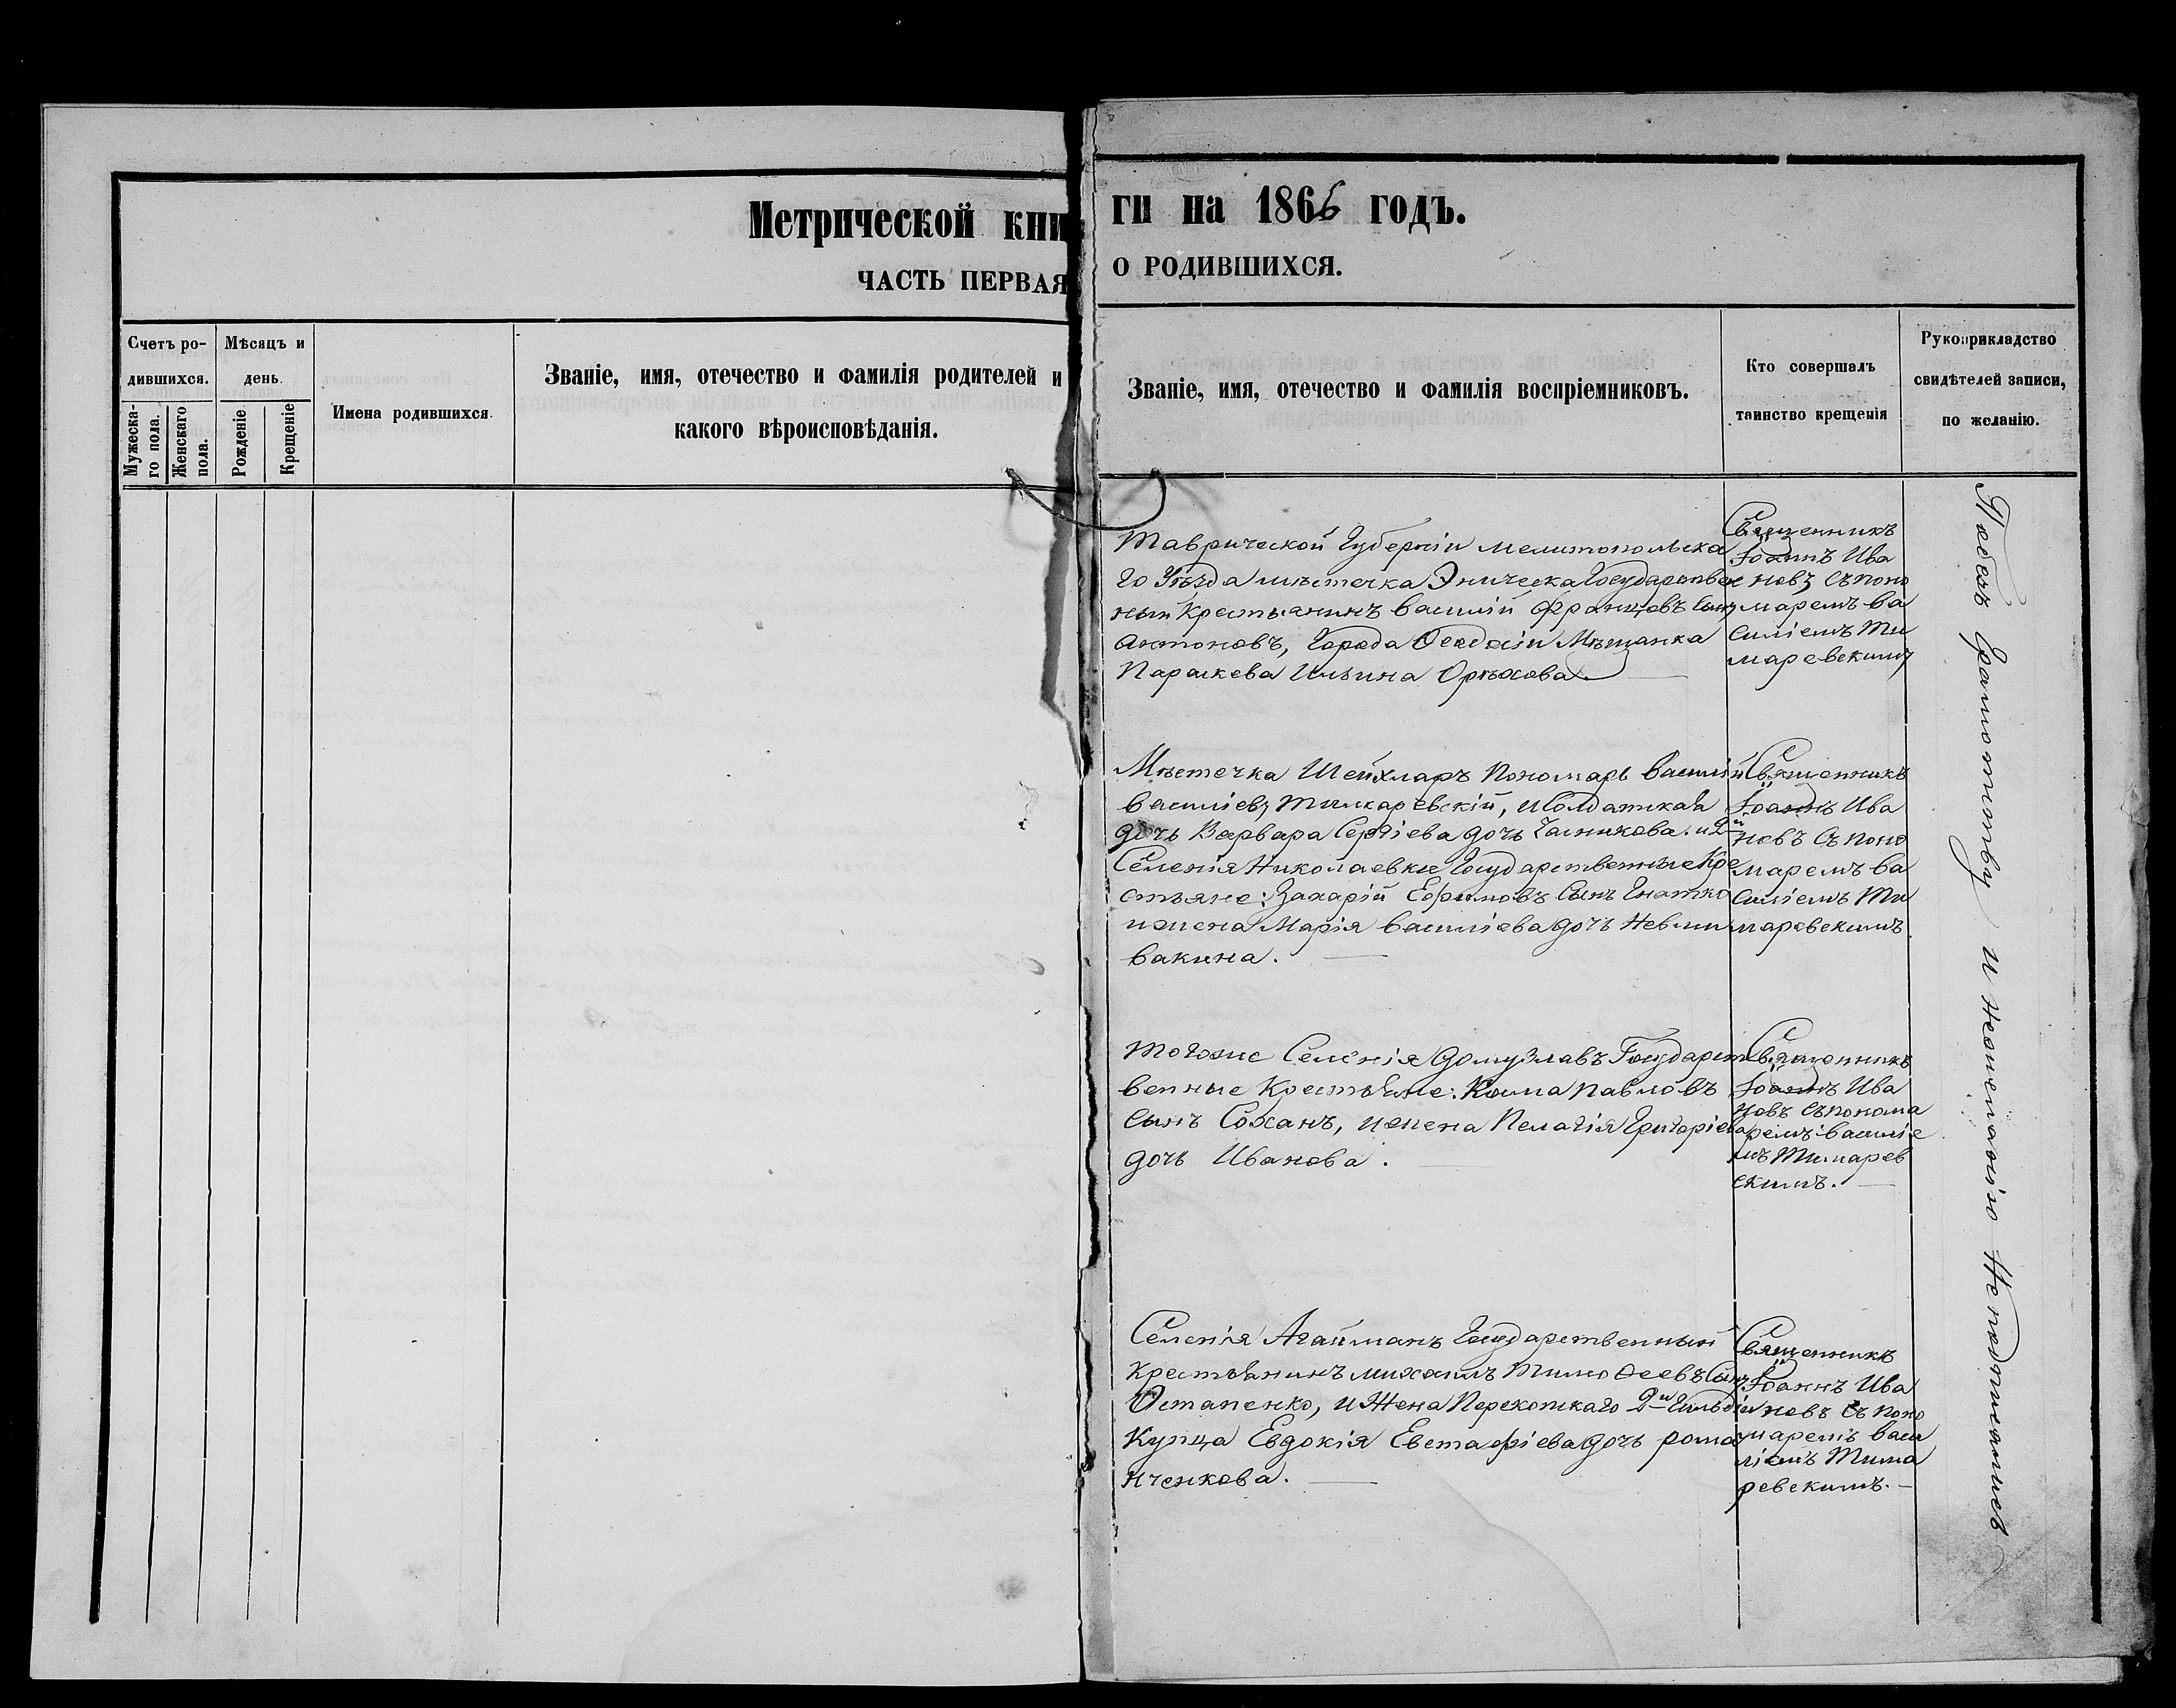 Метрической кни
ЧАСТЬ ПЕРВАЯ
Счетъ ро-
дившихся.
Мѣсяцъ и
день.
Мужеска-
го пола.
Женскаго
пола.
Рожденіе
Крещеніе
Имена родившихся.
Званіе, имя, отечество и фамилія родителей и
какого вѣроисповѣданія.
ги на 1866 годъ.
О РОДИВШИХСЯ.
Званіе, имя, отечество и фамилія воспріемниковъ.
Кто совершалъ
таинство крещенія
Рукоприкладство
свидѣтелей записи,
по желанію.
Таврической Губерніи Мелитопольска
го Уѣзда мѣстечка Эническа Государствен
ный Крестьянинъ Василій Францовъ Сынъ
Антоновъ, Города Ѳеодосіи Мѣщанка
Параскева Ильина Орѣхова.
Священникъ
Іоаннъ Ива
новъ съ поно
маремъ Ва
силіемъ Ти
маревскимъ
Мѣстечка Шейхларъ Пономарь Василій
Василіевъ Тимаревскій, и Солдатская
дочь Варвара Сергіева дочь и 2й
Селенія Николаевки Государственные Кре
стьяне: Захарій Ефимовъ Сынъ Гнатко
и жена Марія Василіева дочь
вакина.
Священникъ
Іоаннъ Ива
новъ Съ поно
маремъ Ва
силіемъ Ти
маревскимъ
Тогоже Селенія Домузлавъ Государст
венные Крестьяне: Косма Павловъ
Сынъ Сохань, и жена Пелагія Григоріева
дочь Иванова.
Священникъ
Іоаннъ Ива
новъ Съ понома
ремъ Василіе
мъ Тимарев
скимъ.
Селенія Агайманъ Государственный
Крестьянинъ Михаилъ Тимоѳеевъ Сынъ
Остапенко, и Жена Перекопскаго 2й Гильдіи
Купца Евдокія Евстафіева дочь Рома
нченкова.
Священникъ
Іоаннъ Ива
новъ Съ поно
маремъ Васи
ліемъ Тима
ревскимъ.
По безграмотству и нежеланію Неподписались